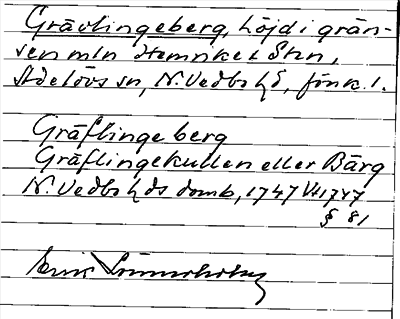 Grävlingeberg, höjd i grän-
sen mln Hemrike o Sten,
Adelövs sn, N. Vedbo hd, Jönk. l.
Gräflinge berg
Gräflingekullen eller Bärg
N. Vedbo hds domb, 1747 Vt 1747
§ 81
Erik